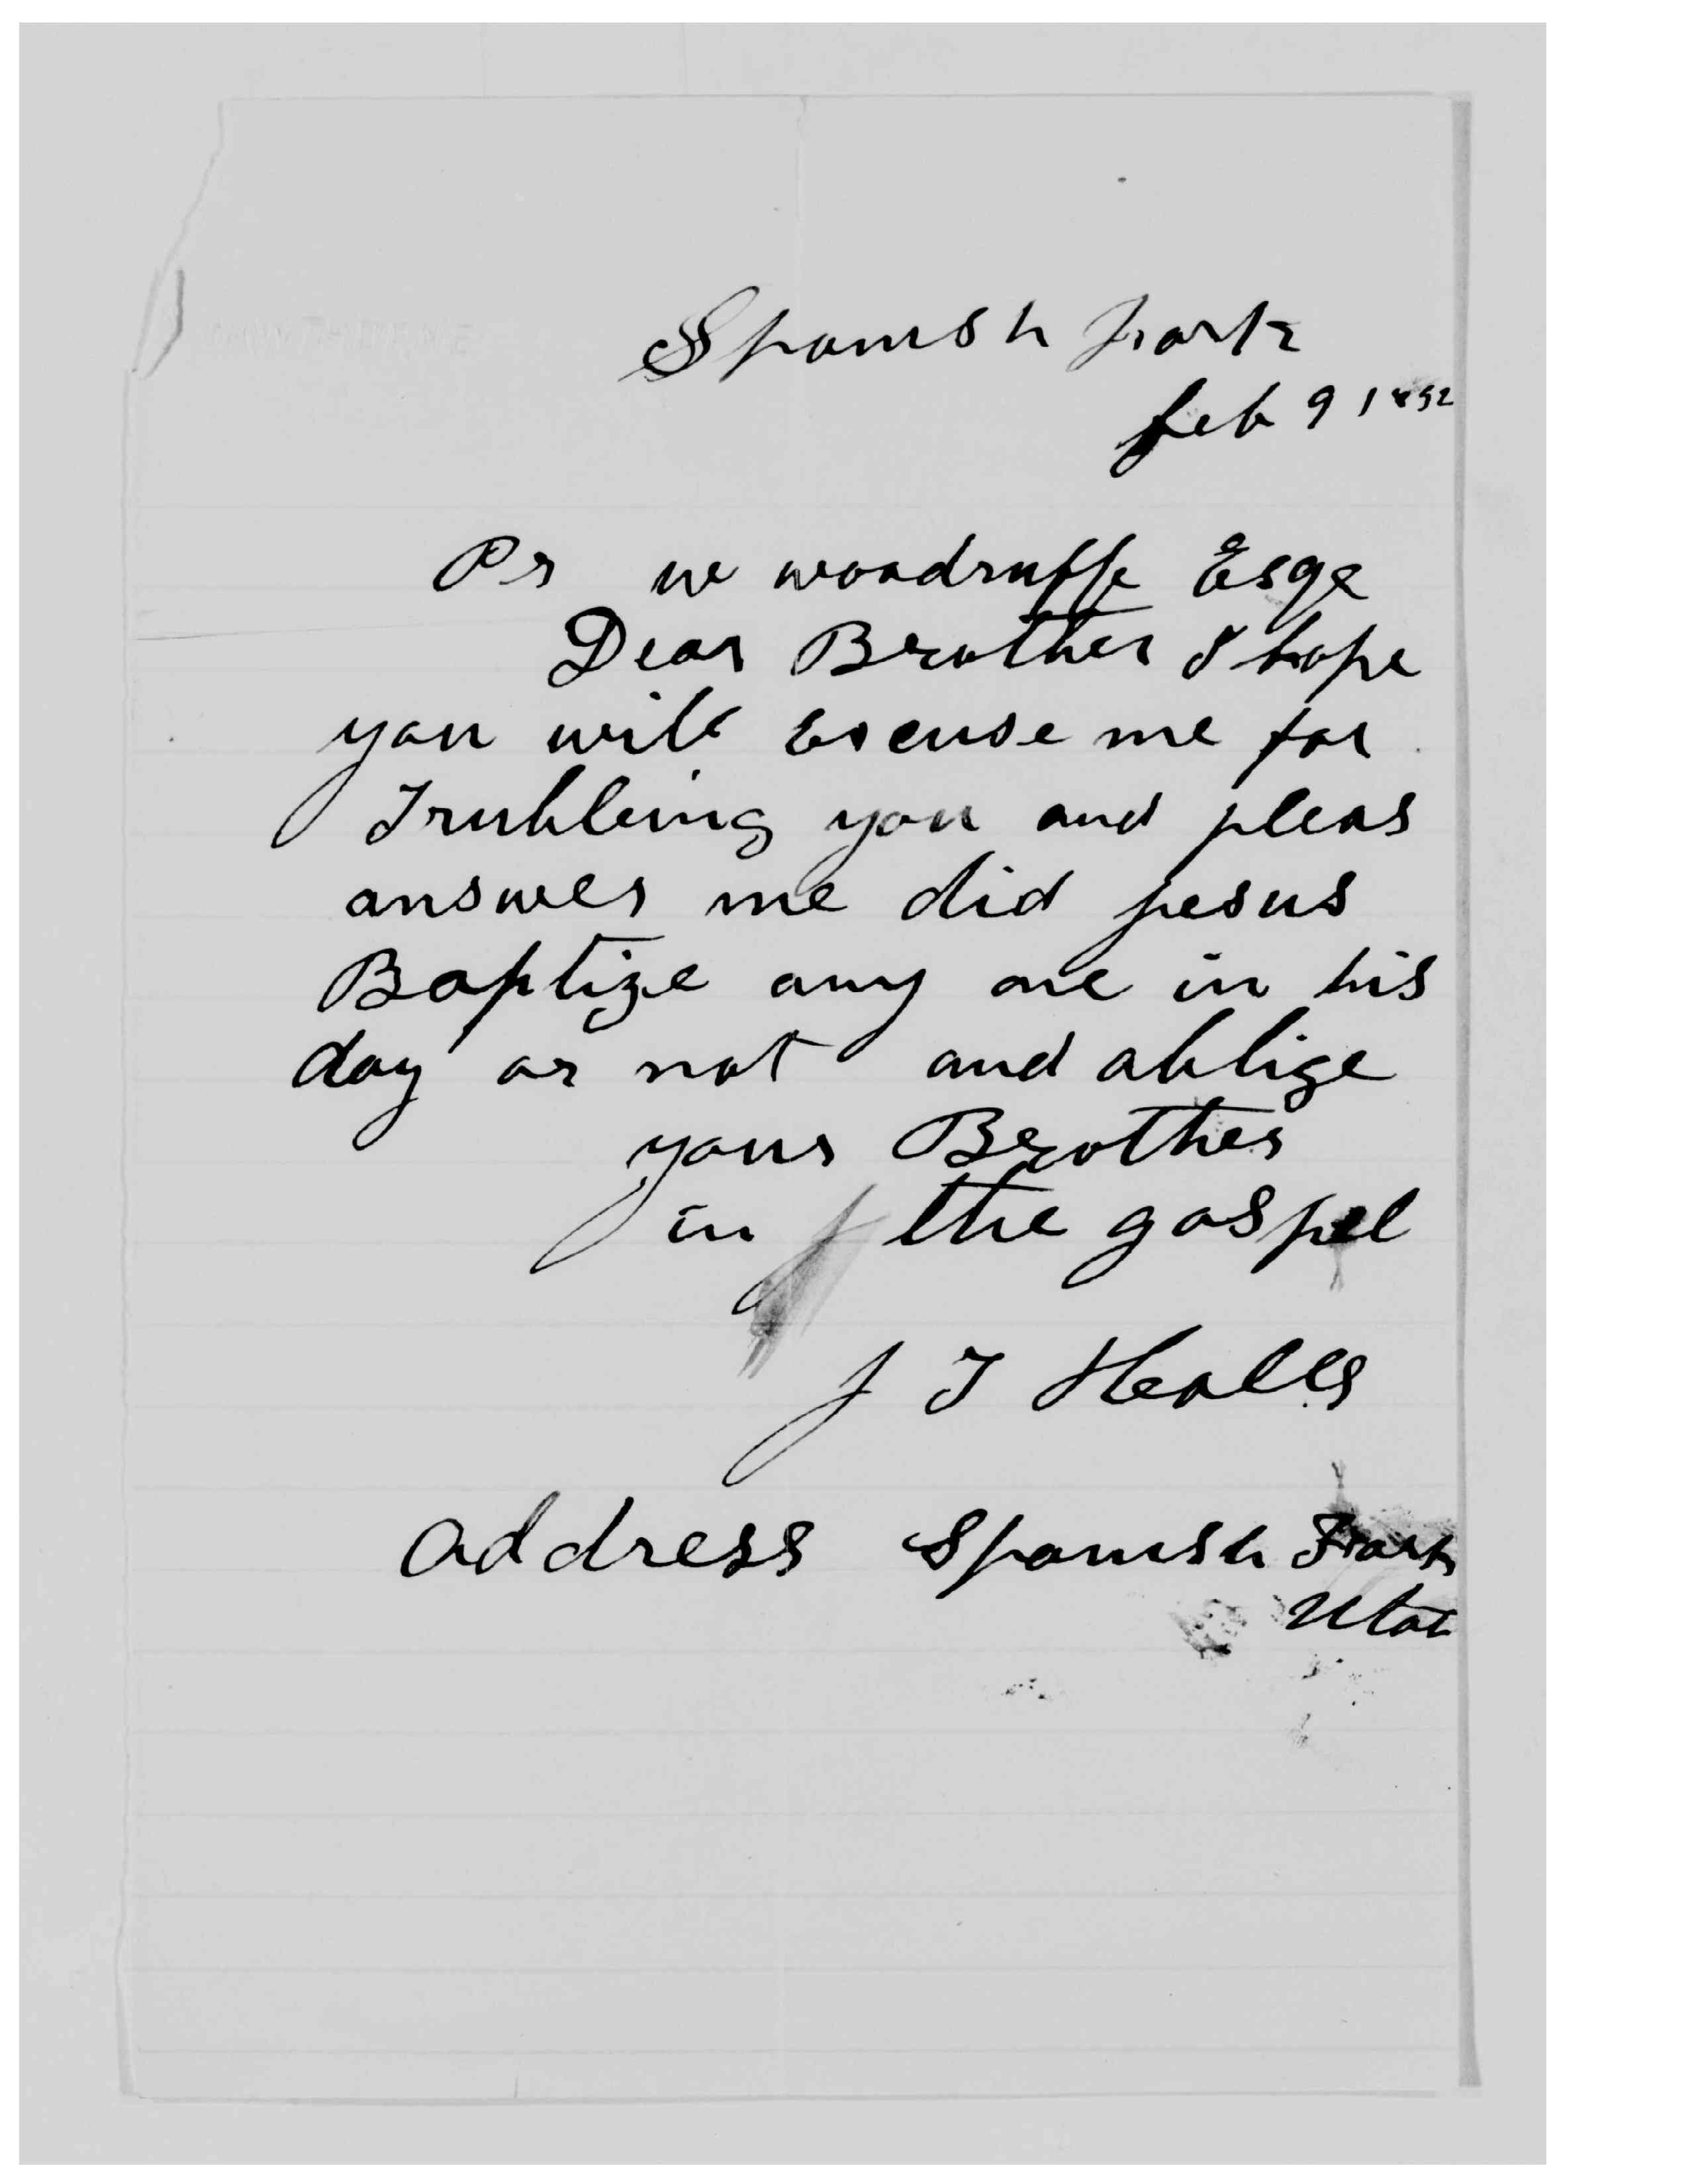 Spanish fork
feb 9 1892
Pr w woodruffe Esqe
Dear Brother I hope
you will Excuse me for
Trubleing you and pleas
answer me did jesus
Baptize any one in his
day or not and oblige
your Brother
in the gospel
J T Healls
address Spanish Fork
Utah